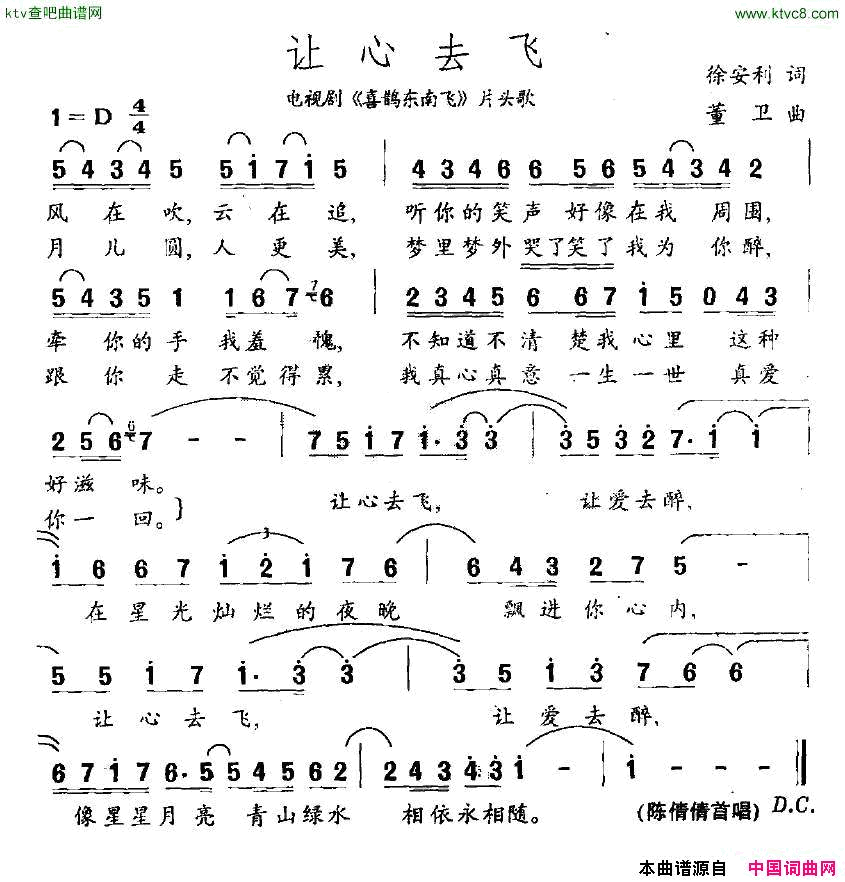 ktv查吧曲谱网
www.ktvc8.com
让心去飞
徐安利 词
电视剧《喜鹊东南飞》片头歌
1=D 4/4
董卫曲
5 4 3 4 5 5 1 7 1 5 | 4 3 4 6 6 5 6 5 4 3 4 2 |
风在吹,云在追, 听你的笑声好像在我周围,
月儿圆,人更美, 梦里梦外哭了笑了我为你醉,
5 4 3 5 1 1 6 7 7 6 | 2 3 4 5 6 6 7 1 5 0 4 3
牵你的手我羞愧, 不知道不清楚我心里这种
跟你走不觉得累, 我真心真意一生一世真爱
2 5 6 6 7 - - | 7 5 1 7 1· 3 3 | 3 5 3 2 7· 1 | 1
好滋味。
你一回。} 让心去飞, 让爱去醉,
1 6 6 7 1 2 1 7 6 | 6 4 3 2 7 5 -
3
在星光灿烂的夜晚 飘进你心内,
5 5 1 7 1· 3 3 | 3 5 1 3 7 6 6
让心去飞, 让爱去醉,
6 7 1 7 6· 5 5 4 5 6 2 | 2 4 3 4· 3 1 - - | 1 - - ||
像星星月亮青山绿水 相依永相随。
(陈倩倩首唱) D.C.
本曲谱源自 中国词曲网